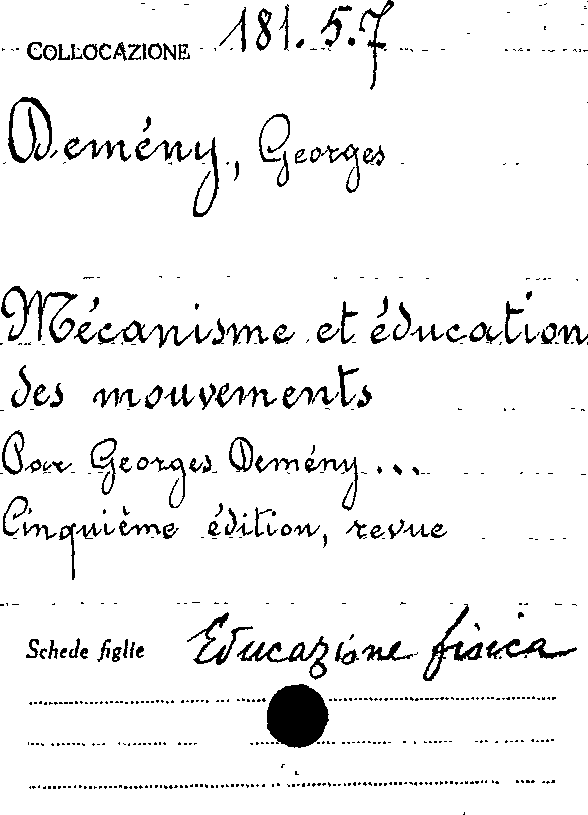 COLLOCAZIONE 181.5.7
Demény, Georges
Mécanisme et éducation
des mouvements
Par Georges Demény...
Cinquième édition, revue
Schede figlie Educazione fisica